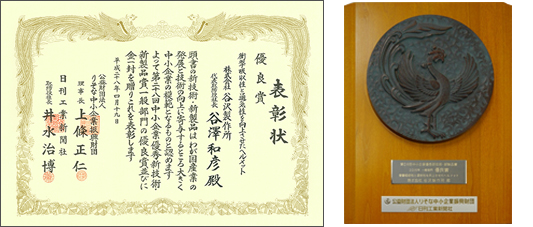 表彰状
優良賞
衝撃吸収性と通気性を向上させたヘルメット
株式会社 谷沢製作所
代表取締役社長 谷澤和彦殿
頭書の新技術・新製品はわが国産業の
発展と技術の向上に寄与するところ大きく
中小企業の模範となるものと認めます
よって第二八回中小企業優秀新技術
新製品賞一般部門の優良賞並びに
金一封を贈りこれを表彰します
平成二八年四月十九日
公益財団法人
りそな中小企業振興財団
理事長 上條正仁
日刊工業新聞社
取締役社長 井水治博
優良賞
公益財団法人りそな中小企業振興財団
日刊工業新聞社